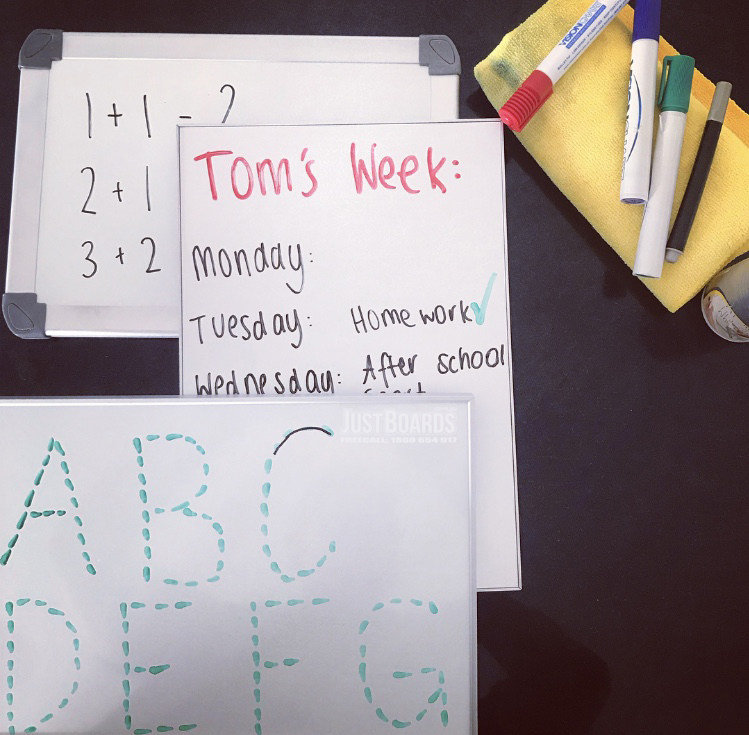 1 + 1 = 2
2 + 1
3 + 2
Tom's Week:
Monday:
Tuesday: Homework ✓
Wednesday: After school
JUSTBOARDS
A B C
D E F G